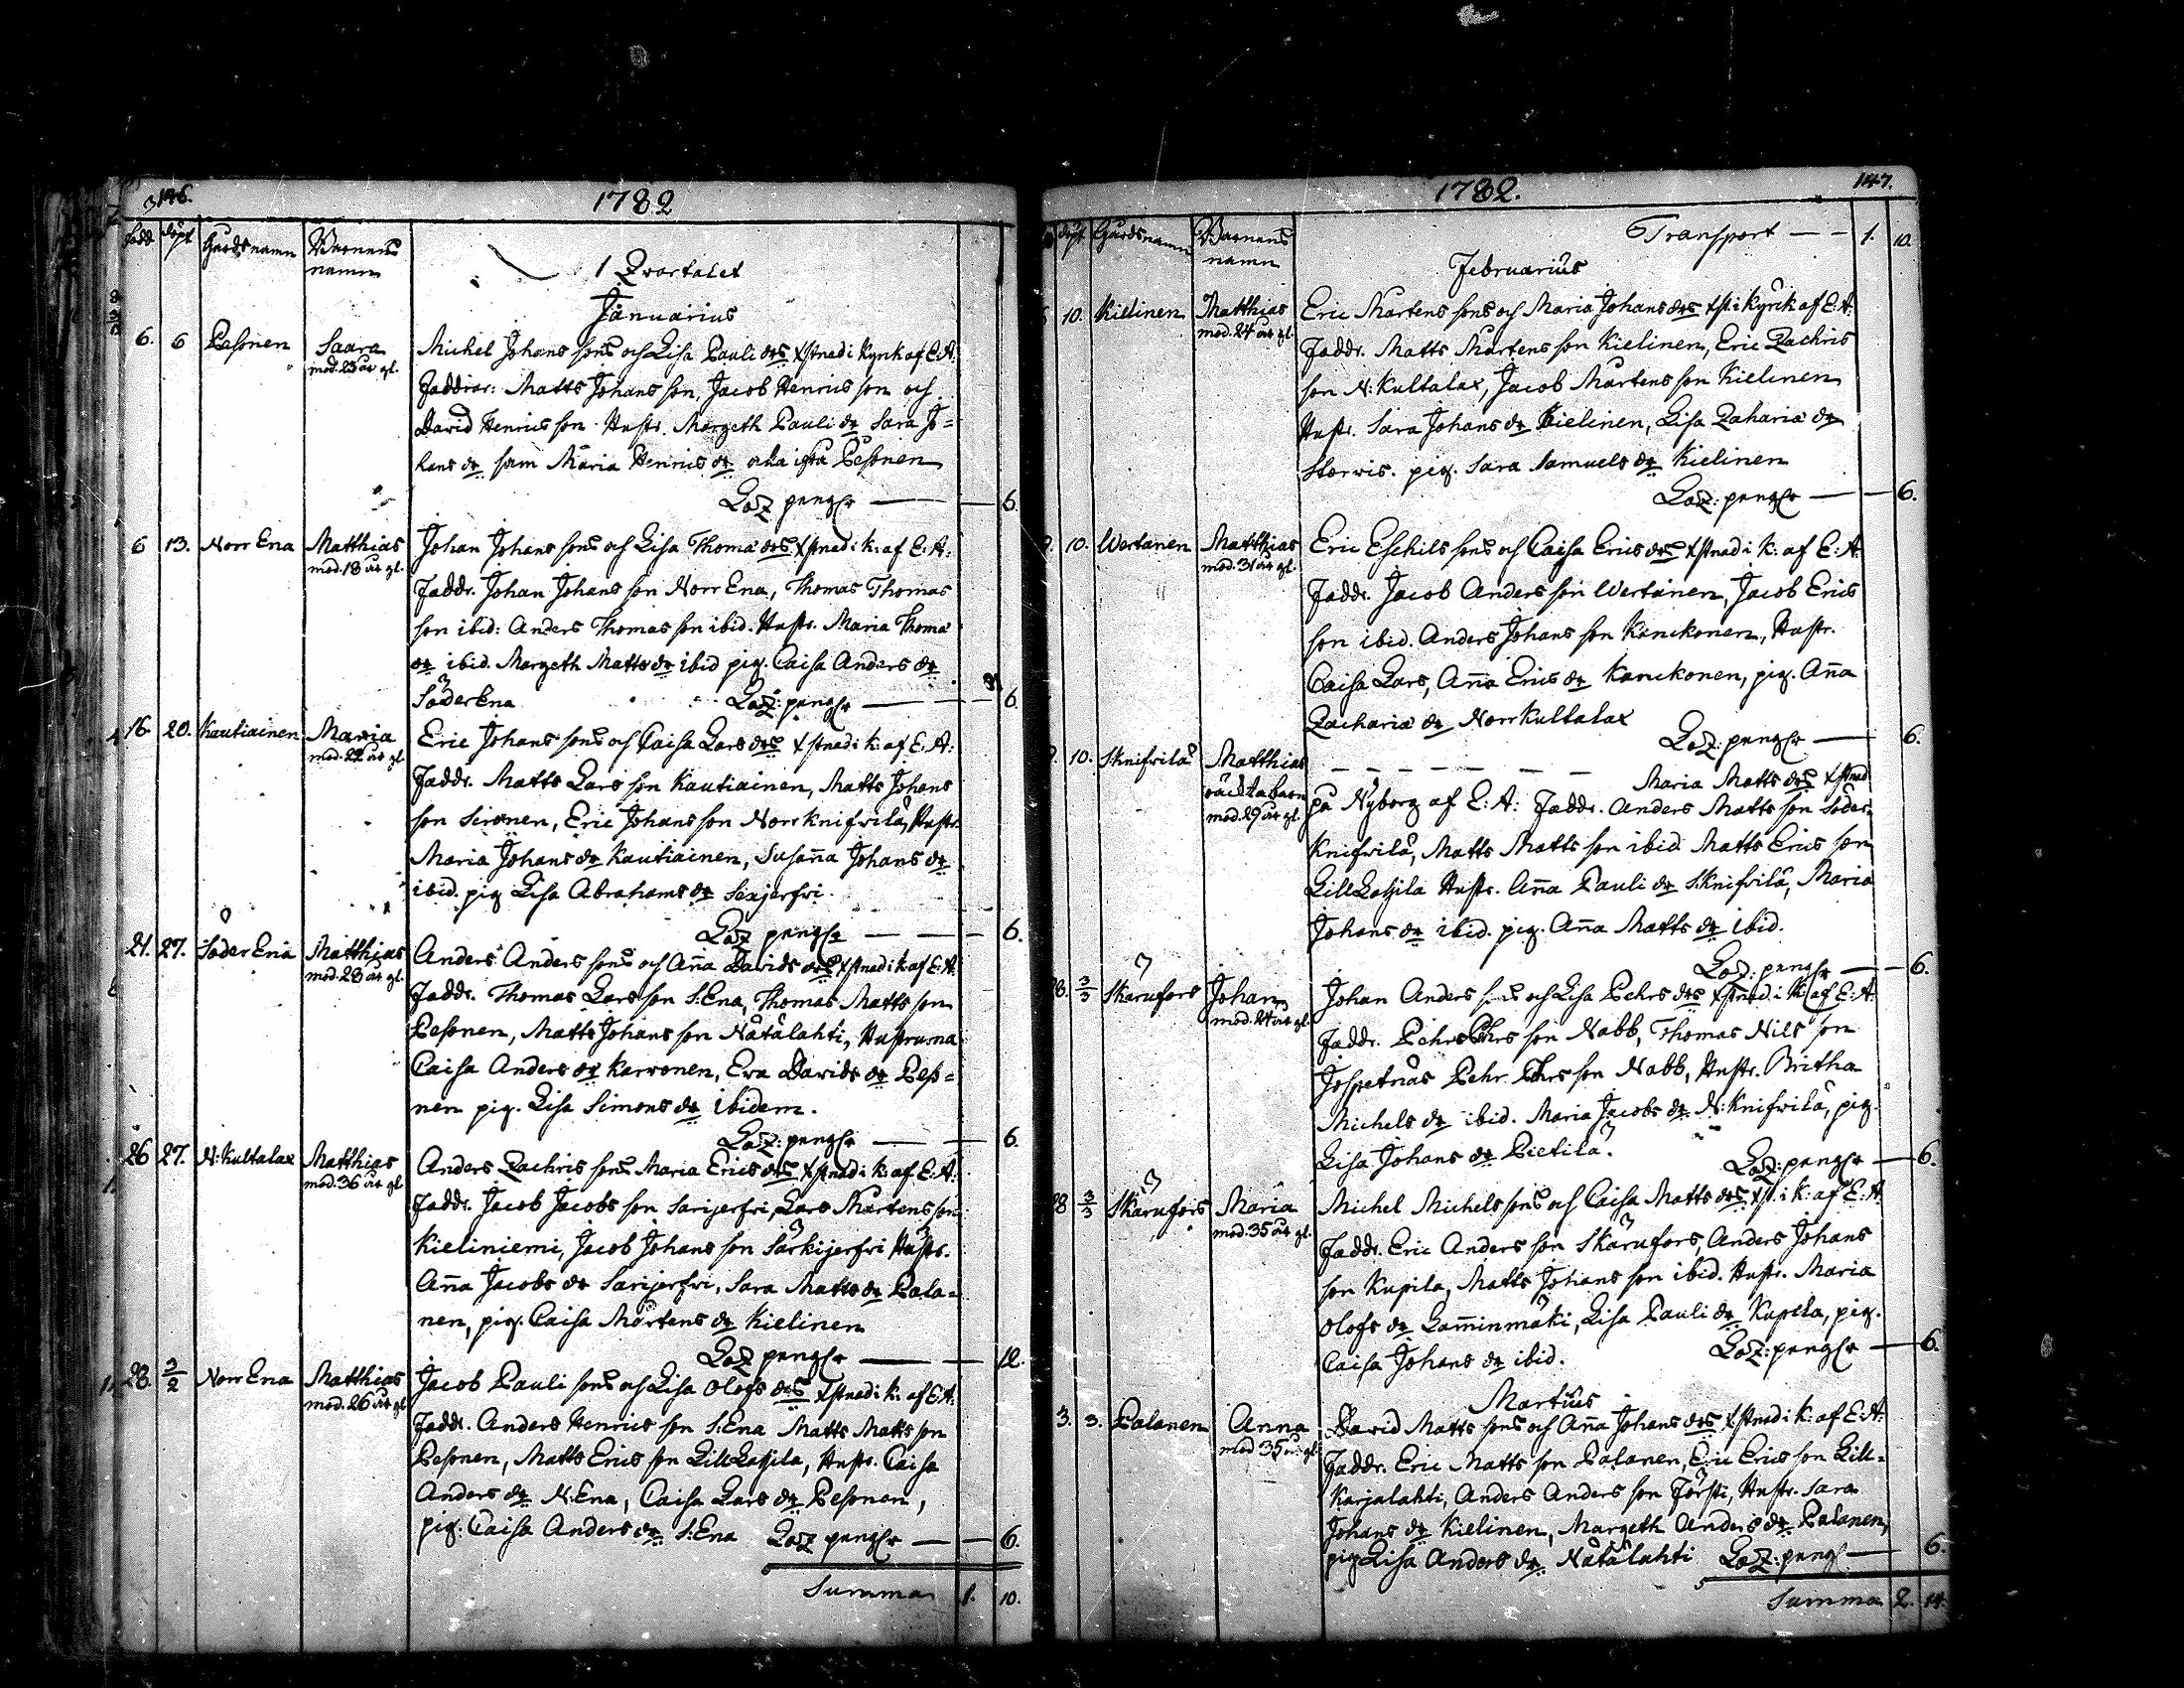 146.
1782
född
döpt
Gårdsnamn
Barnens
namn
1 Qvartalet
Januarius
6. 6 Pesonen Saara
mod. 23 år gl.
Michel Johans son och Lisa Pauli dr xstnad i Kyrk af E:A.
Faddrar: Matts Johans son, Jacob Henrics son och
David Henrics son. Hustr. Margeth Pauli dr Sara Jo-
hans dr som Maria Henrics dr alla ifrå Pesonen
Laz pengr — 6.
6 13. Norr Ena Matthias
mod. 18 år gl.
Johan Johans son och Lisa Thomæ dr xstnad i k: af E:A:
Faddr. Johan Johans son Norr Ena, Thomas Thomas
son ibid: Anders Thomas son ibid. Hustr. Maria Thomæ
dr ibid. Margeth Matts dr ibid pig. Caisa Anders dr
Söder Ena Laz: pengr — 6
16. 20. Kautiainen Maria
mod. 22 år gl.
Eric Johans son och Caisa Lars dr xstnad i k: af E:A:
Faddr. Matts Lars son Kautiainen, Matts Johans
son Sironen, Eric Johans son Norrknifvilä, Hustr.
Maria Johans dr Kautiainen, Susaña Johans dr
ibid. pig Lisa Abrahams dr Sexjerfvi.
Laz pengr — 6.
21. 27. Söder Ena Matthias
mod. 28 år gl.
Anders Anders son och Aña Davids dr xstnad i k: af E:A:
Faddr. Thomas Lars son S:Ena, Thomas Matts son
Pesonen, Matts Johans son Nätälahti, Hustruna
Caisa Anders dr Karvonen, Eva Davids dr Peso-
nen pig. Lisa Simons dr ibidem.
Laz: pengr — 6
26 27. N:Kultalax Matthias
mod. 36 år gl.
Anders Zachris son Maria Erics dr xstnad i k: af E:A:
Faddr. Jacob Jacobs son Sarijerfvi, Lars Mårtens son
Kieliniemi, Jacob Johans son Särkijerfvi Hustr.
Aña Jacobs dr Sarijerfvi, Sara Matts dr Pala-
nen, pig. Caisa Mårtens dr Kielinen
Laz pengr — 12.
28. 3/2 Norr Ena Matthias
mod. 26 år gl
Jacob Pauli son och Lisa Olofs dr xstnad i k: af E:A:
Faddr. Anders Henrics son S:Ena Matts Matts son
Pesonen, Matts Erics son LillLatjila, Hustr. Caisa
Anders dr N:Ena, Caisa Lars dr Pesonen,
pig. Caisa Anders dr S:Ena Laz pengr — 6.
Summa 1. 10.
147.
1782.
döpt
Gårdsnamn
Barnens
namn
Transport — 1. 10.
Februarius
10. Kielinen Matthias
mod. 24 år gl.
Eric Mårtens son och Maria Johans dr xst: i Kyrk af E:A:
Faddr. Matts Mårtens son Kielinen, Eric Zachris
son N:Kultalax, Jacob Mårtens son Kielinen
Hustr. Sara Johans dr Kielinen, Lisa Zachariæ dr
pig. Sara Samuels dr Kielinen
Laz: pengr — 6.
10. Wertanen Matthias
mod. 31 år gl.
Eric Eschils son och Caisa Erics dr xstnad i k: af E:A
Faddr. Jacob Anders son Wertänen, Jacob Erics
son ibid. Anders Johans son Kanikonen, Hustr.
Caisa Lars, Aña Erics dr Kanikonen, pig. Aña
Zachariæ dr Norrkultalax Laz: pengr — 6.
10. S:knifvilä Matthias
oäckta barn
mod. 29 år gl.
— — — — — — Maria Matts dr xstnad
på Nyborg af E:A: Faddr. Anders Matts son Söder-
knifvilä, Matts Matts son ibid Matts Erics son
LillLatjila Hustr. Aña Pauli dr S:Knifvilä, Maria
Johans dr ibid. pig. Aña Matts dr ibid.
Laz: pengr — 6.
28. 3/3 Skärufors Johan
mod. 24 år gl
Johan Anders son och Lisa Pehrs dr xstnad. i k: af E:A:
Faddr. Pehr Pehrs son Nabb, Thomas Nils son
Pehr Pehrs son Nabb, Hustr. Britha
Michels dr ibid. Maria Jacobs dr N:Knifvilä, pig.
Lisa Johans dr Pietilä. Laz: pengr — 6.
28 3/3 Skärufors Maria
mod. 35 år gl.
Michel Michels son och Caisa Matts dr xst. i k: af E:A
Faddr. Eric Anders son Skärufors, Anders Johans
son Kupila, Matts Johans son ibid. Hustr. Maria
Olofs dr Lamminmäki, Lisa Pauli dr Kupila, pig.
Caisa Johans dr ibid. Laz: pengr — 6.
Martius
3. 3. Palanen Anna
mod 35 år gl
David Matts son och Aña Johans dr xstnad i k: af E:A:
Faddr. Eric Matts son Palanen, Eric Erics son Lill-
karjalahti, Anders Anders son Försti, Hustr. Sara
Johans dr Kielinen, Margeth Anders dr Palanen,
pig Lisa Anders dr Nätälahti Laz: pengr — 6.
Summa 2. 14.